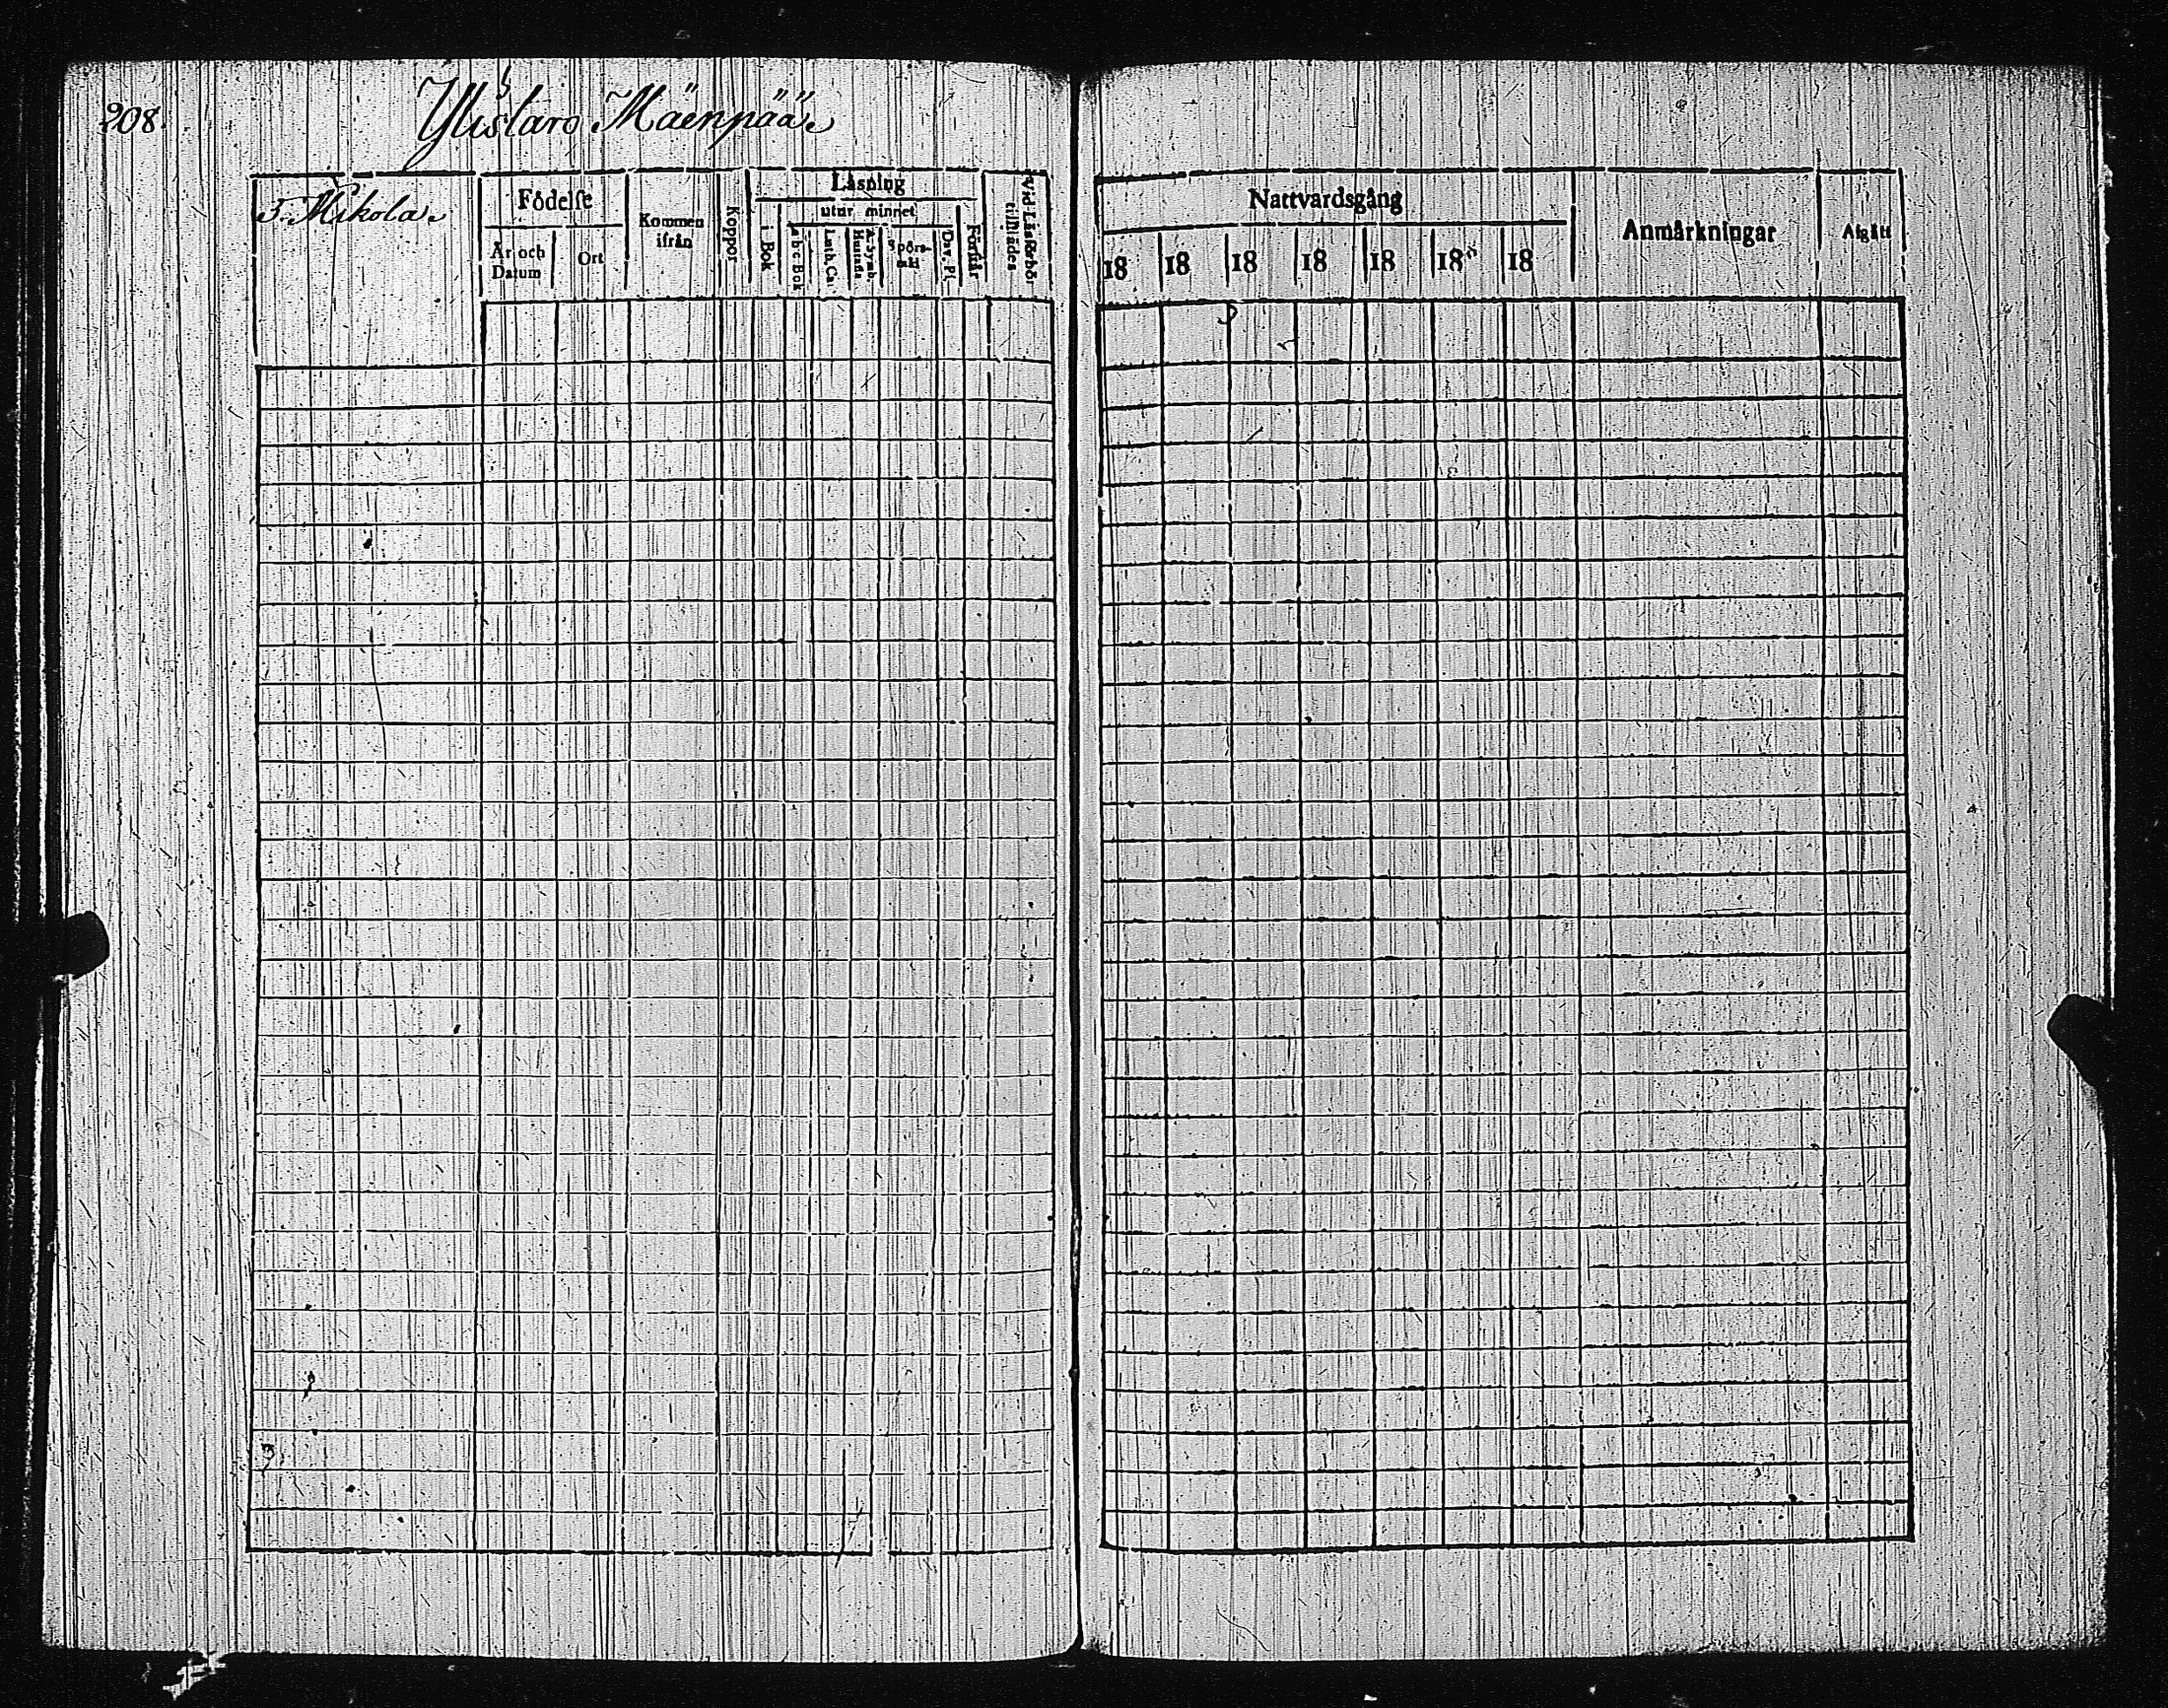 208.
Ylistaro Mäenpää
5. Mikola
Födelse
År och Datum
Ort
Kommen ifrån
Koppor
Läsning
i Bok
utur minnet
a b c Bok
Luth. Ca.
A. Symb. Hustafla
Spörsmål
Dav. Ps.
Förstår
Vid Läsförhör tillstädes
Nattvardsgång
18 18 18 18 18 18 18
Anmärkningar
Afgått